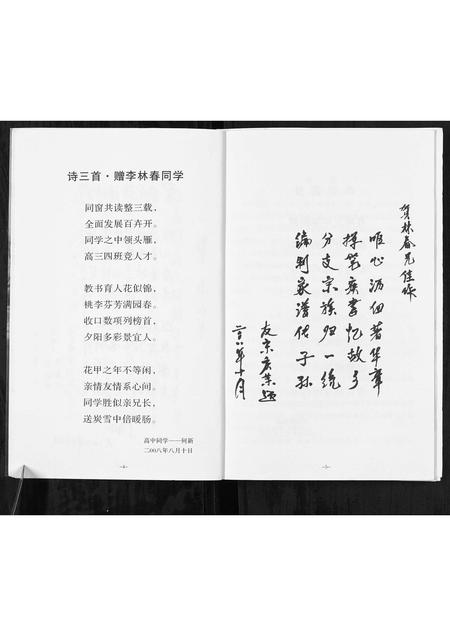 诗三首·赠李林春同学
同窗共读整三载，
全面发展百卉开。
同学之中领头雁，
高三四班竞人才。
教书育人花似锦，
桃李芬芳满园春。
收口数项列榜首，
夕阳多彩景宜人。
花甲之年不等闲，
亲情友情系心间。
同学胜似亲兄长，
送炭雪中倍暖肠。
高中同学——何新
二〇〇八年八月十日
-4-
贺林春兄佳作
呕心沥血著华章
挥笔疾书忆故乡
分支宗族归一统
编制家谱传子孙
友宗庆荣题
年十月
-5-